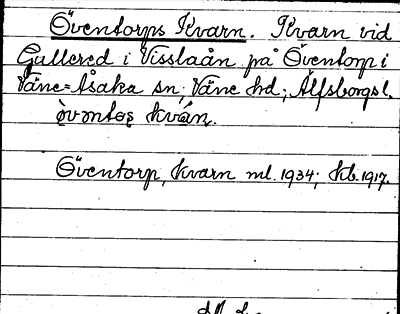 Öventorps Kvarn. Kvarn vid
Gullered i Visslaån på Öventorp i
Väne-Åsaka sn; Väne hd; Älfsborgs l.
kván.
Öventorp, kvarn ml. 1934; kb. 1917.